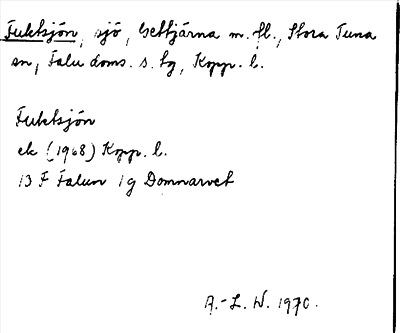 Fuktsjön, sjö, Gettjärna m. fl., Stora Tuna
sn, Falu doms. s. tg, Kopp. l.
Fuktsjön
ek (1968) Kopp. l.
13 F Falun 1g Domnarvet
A.-L. W. 1970.